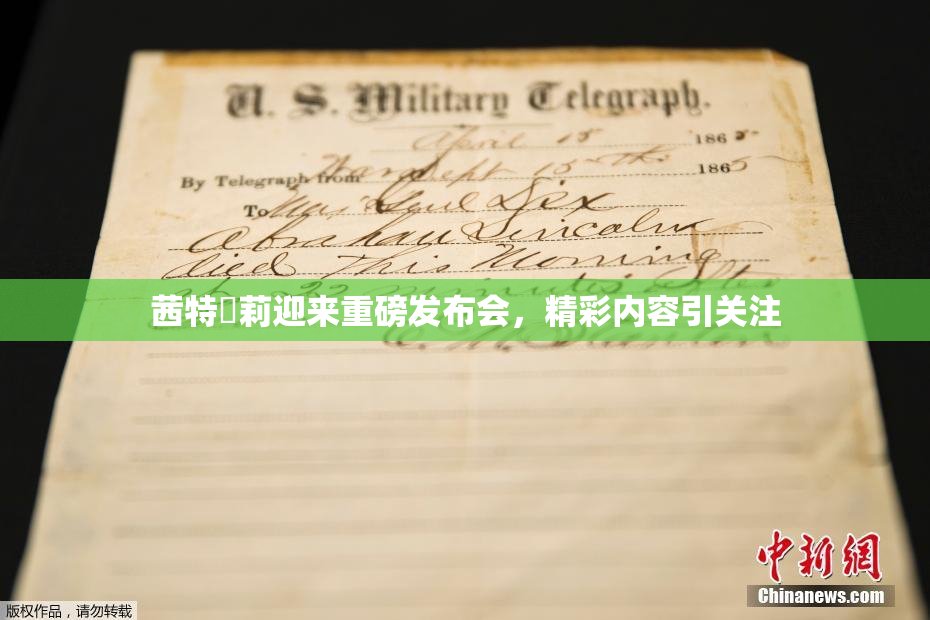 U. S. Military Telegraph.
April 15 1865
By Telegraph from War Dept 15th 1865
To Maj Genl Dix
Abraham Lincoln
died This Morning
at 22 minutes after
茜特莉迎来重磅发布会，精彩内容引关注
E. M. Stanton
中新網
Chinanews.com
版权作品，请勿转载